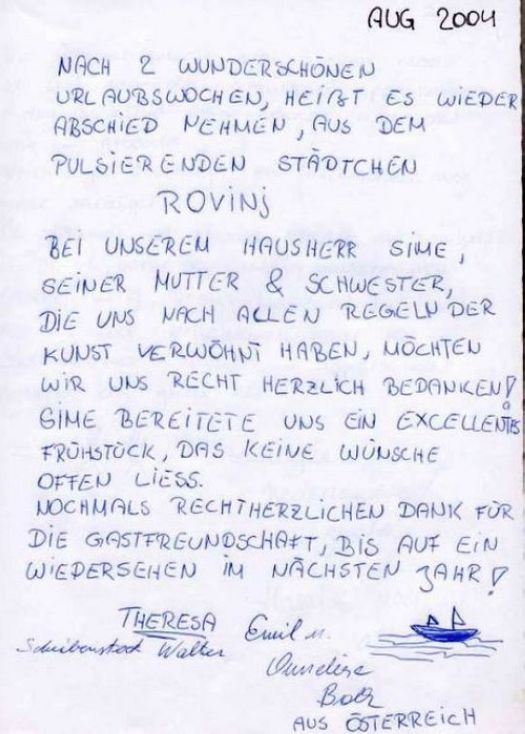 AUG 2004
NACH 2 WUNDERSCHÖNEN
URLAUBSWOCHEN, HEIßT ES WIEDER
ABSCHIED NEHMEN, AUS DEM
PULSIERENDEN STÄDTCHEN
ROVINj
BEI UNSEREM HAUSHERR SIME,
SEINER MUTTER & SCHWESTER,
DIE UNS NACH ALLEN REGELN DER
KUNST VERWÖHNT HABEN, MÖCHTEN
WIR UNS RECHT HERZLICH BEDANKEN!
SIME BEREITETE UNS EIN EXCELLENTES
FRÜHSTÜCK, DAS KEINE WÜNSCHE
OFFEN LIESS.
NOCHMALS RECHTHERZLICHEN DANK FÜR
DIE GASTFREUNDSCHAFT, BIS AUF EIN
WIEDERSEHEN IM NÄCHSTEN JAHR!
THERESA Emil u.
Walter
AUS ÖSTERREICH